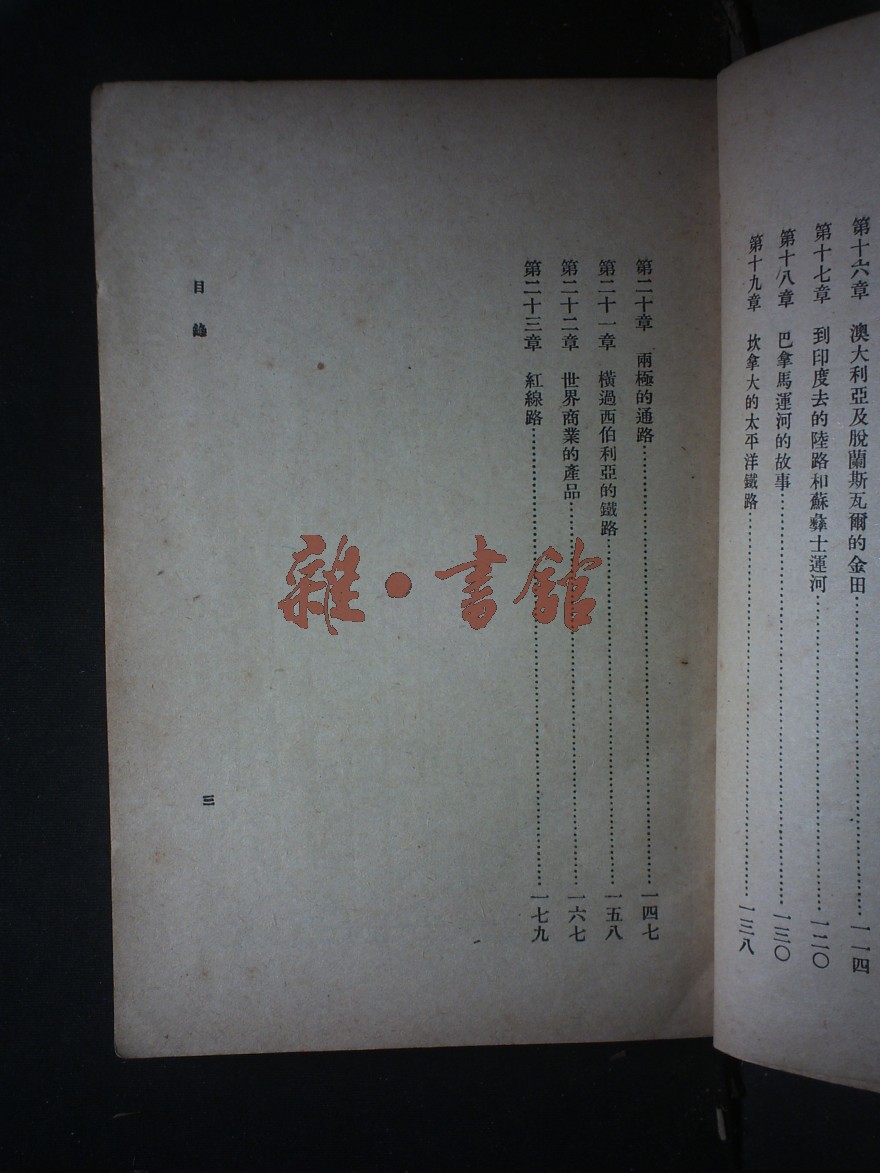 第十六章　澳大利亞及脫蘭斯瓦爾的金田……一一四
第十七章　到印度去的陸路和蘇彝士運河……一二〇
第十八章　巴拿馬運河的故事……一三〇
第十九章　坎拿大的太平洋鐵路……一三八
第二十章　兩極的通路……一四七
第二十一章　橫過西伯利亞的鐵路……一五八
第二十二章　世界商業的產品……一六七
第二十三章　紅線路……一七九
目錄
三
雜·書館